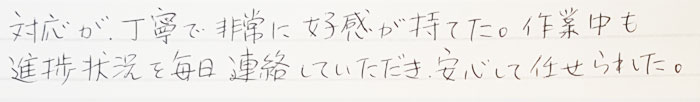 対応が、丁寧で非常に好感が持てた。作業中も
進捗状況を毎日連絡していただき、安心して任せられました。